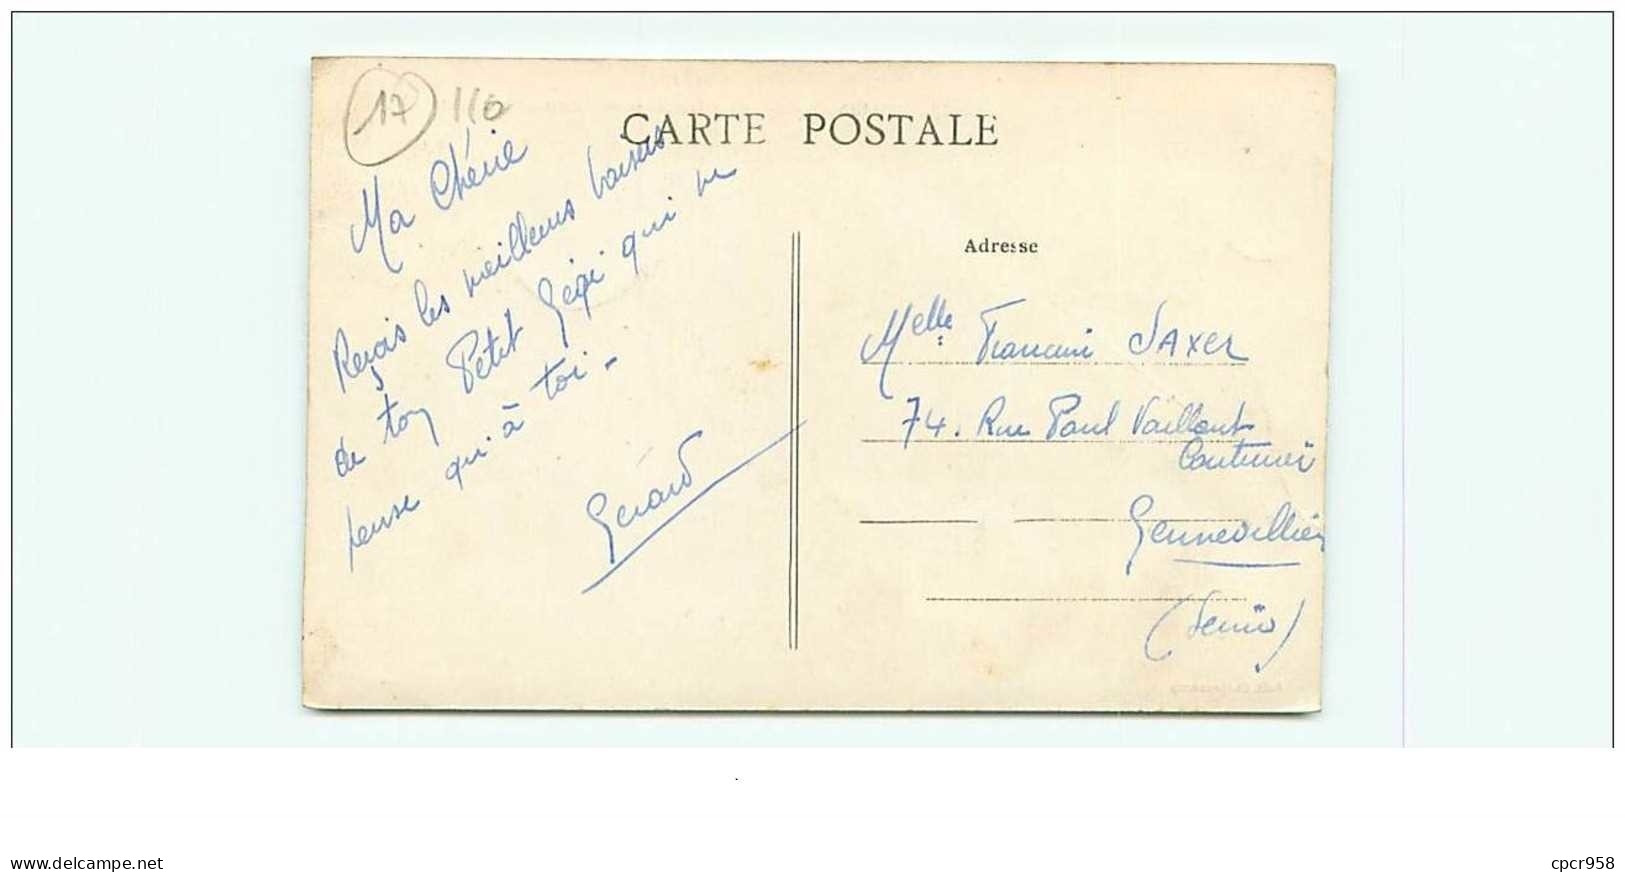 17 110
CARTE POSTALE
Ma Chérie
Reçois les meilleurs baisers
de ton Petit Gégé qui ne
pense qu'à toi -
Gérard
Adresse
Melle Francine SAXER
74. Rue Paul Vaillant
Couturier
Gennevilliers
(Seine)
www.delcampe.net
cpcr958